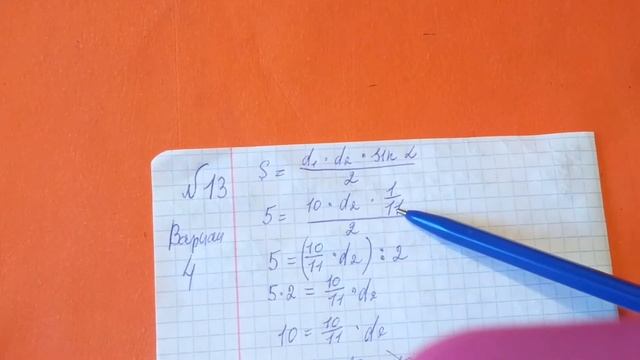 №13
Вариан
4
S = d₁ · d₂ · sin α / 2
5 = 10 · d₂ · 1/11 / 2
5 = (10/11 · d₂) : 2
5·2 = 10/11 · d₂
10 = 10/11 · d₂